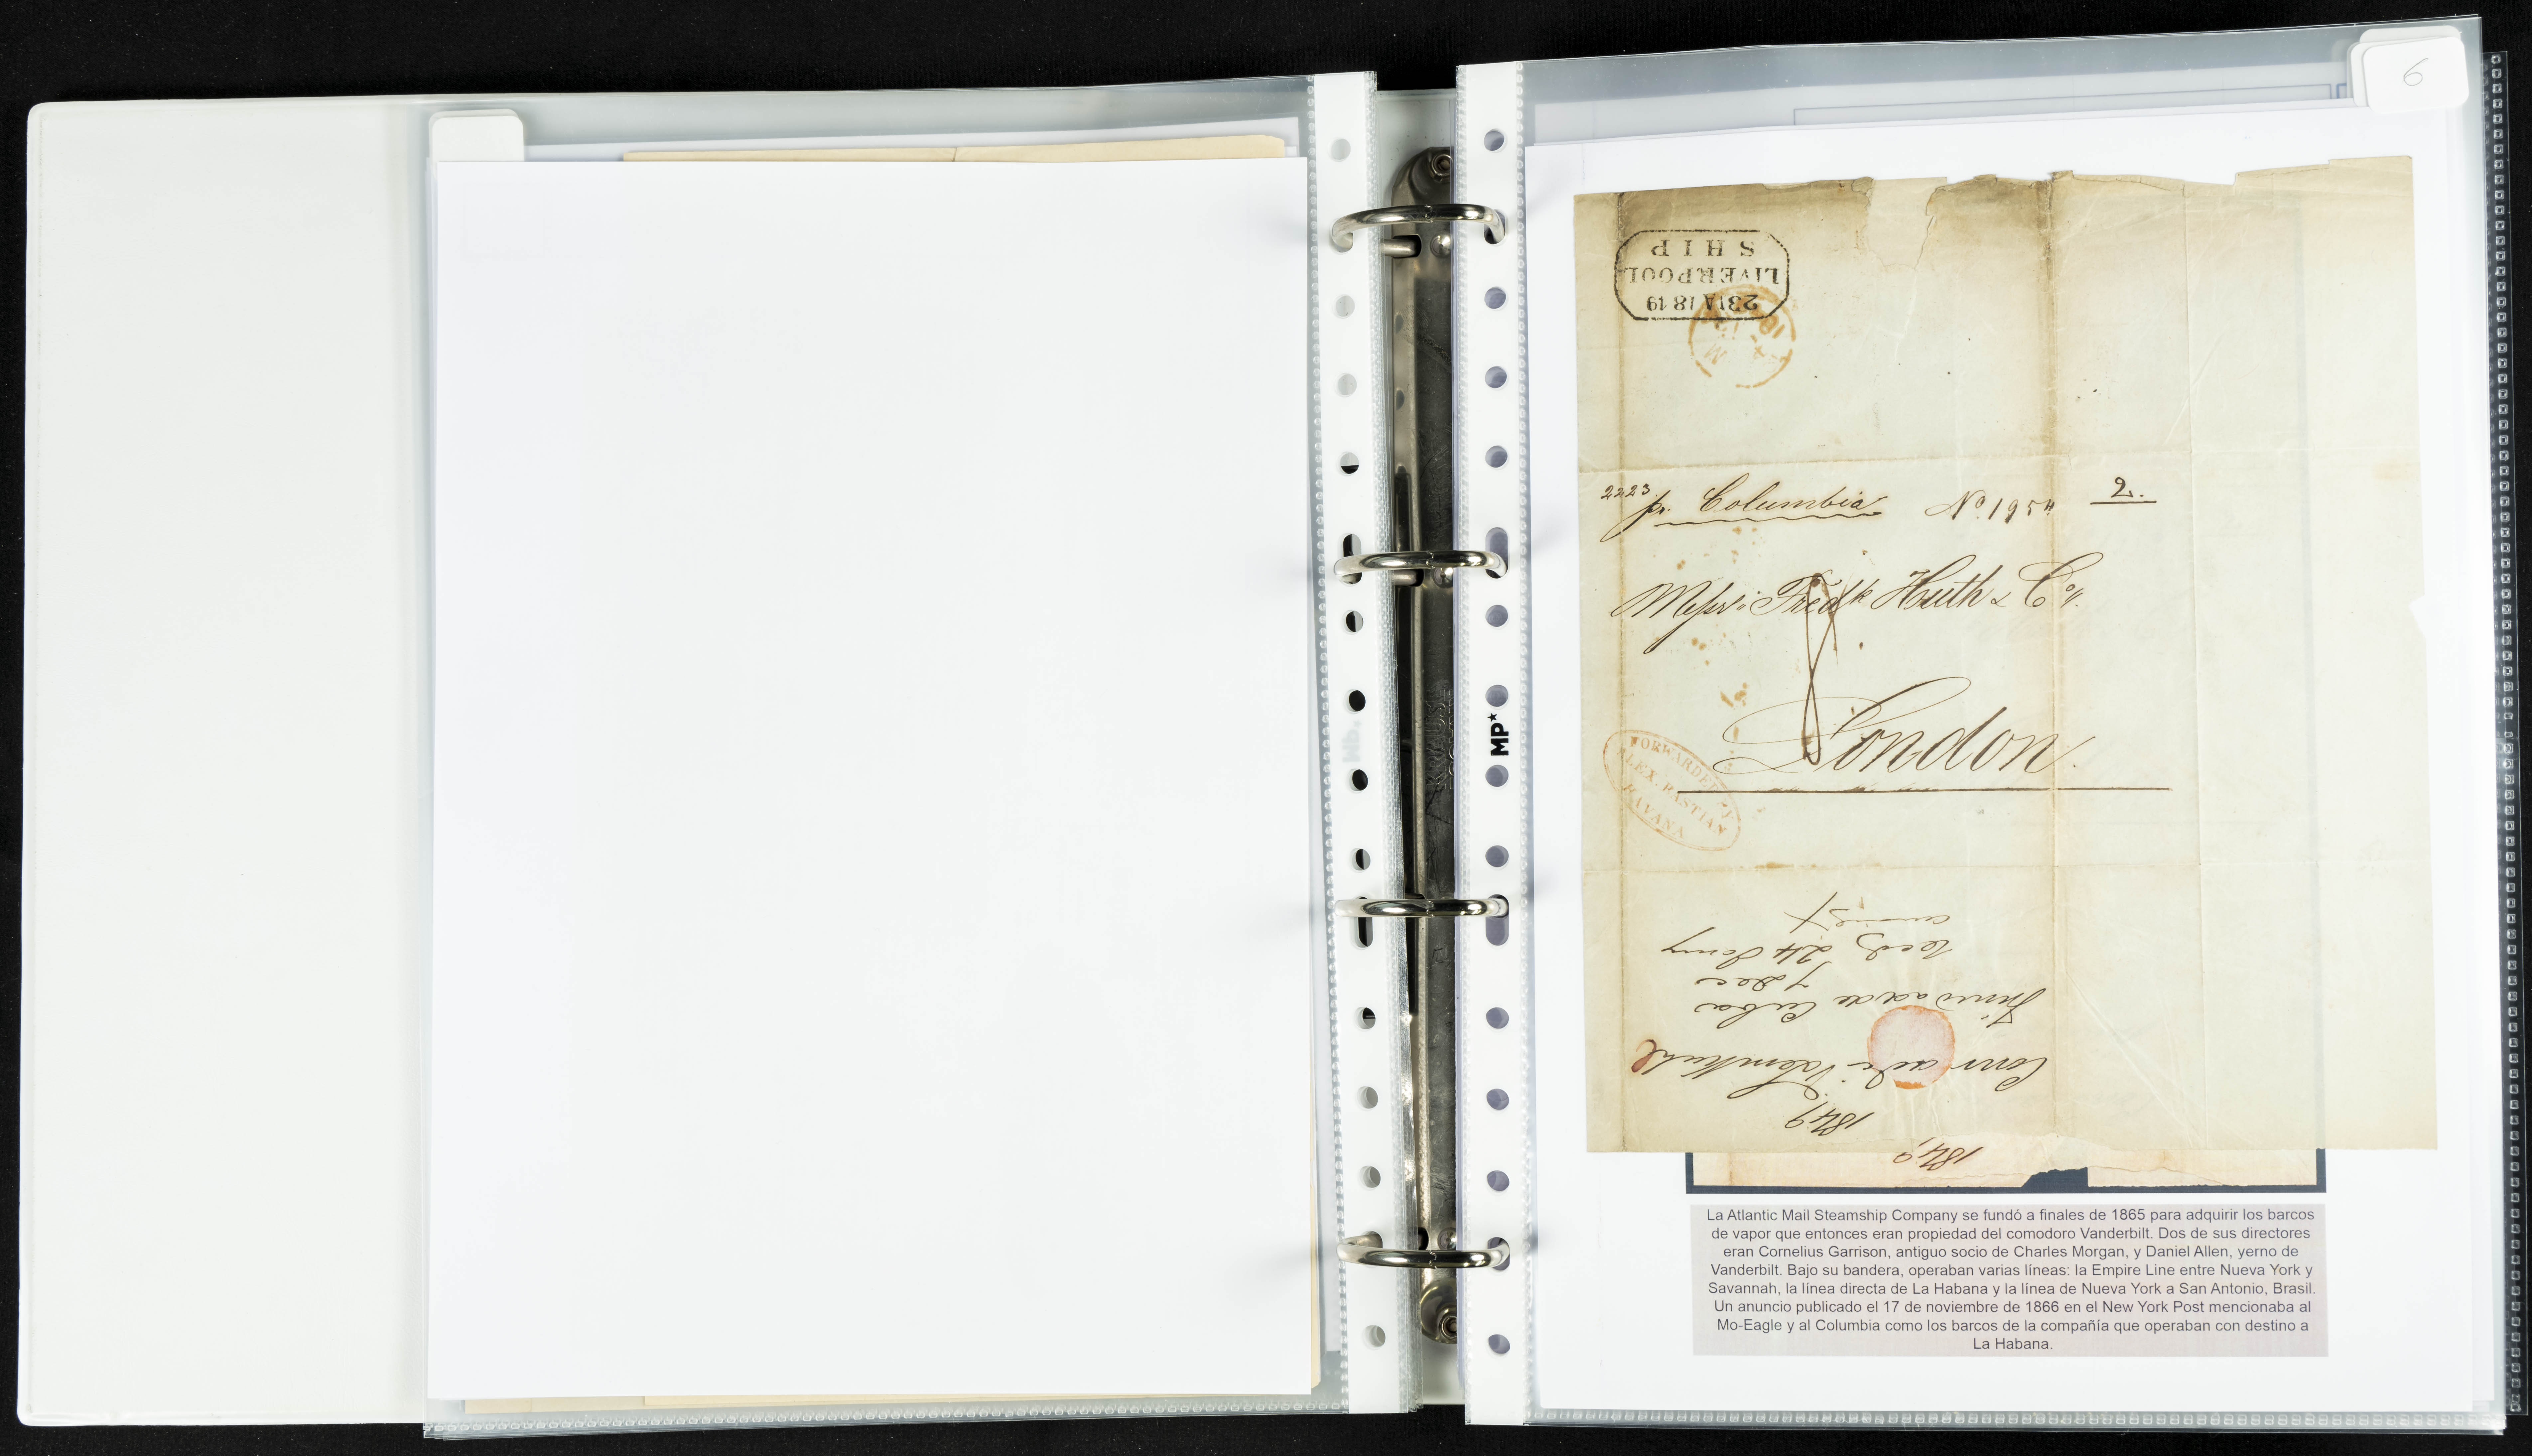 6
SHIP
LIVERPOOL
2223
pr. Columbia No. 1954 2.
Messrs Fredk Huth & Co.
8
London.
FORWARDED BY
ALEX. BASTIAN
HAVANA
1849
Trinidad de Cuba
7 Dec
recd 24 Jany
1849
MP*
La Atlantic Mail Steamship Company se fundó a finales de 1865 para adquirir los barcos
de vapor que entonces eran propiedad del comodoro Vanderbilt. Dos de sus directores
eran Cornelius Garrison, antiguo socio de Charles Morgan, y Daniel Allen, yerno de
Vanderbilt. Bajo su bandera, operaban varias líneas: la Empire Line entre Nueva York y
Savannah, la línea directa de La Habana y la línea de Nueva York a San Antonio, Brasil.
Un anuncio publicado el 17 de noviembre de 1866 en el New York Post mencionaba al
Mo-Eagle y al Columbia como los barcos de la compañía que operaban con destino a
La Habana.